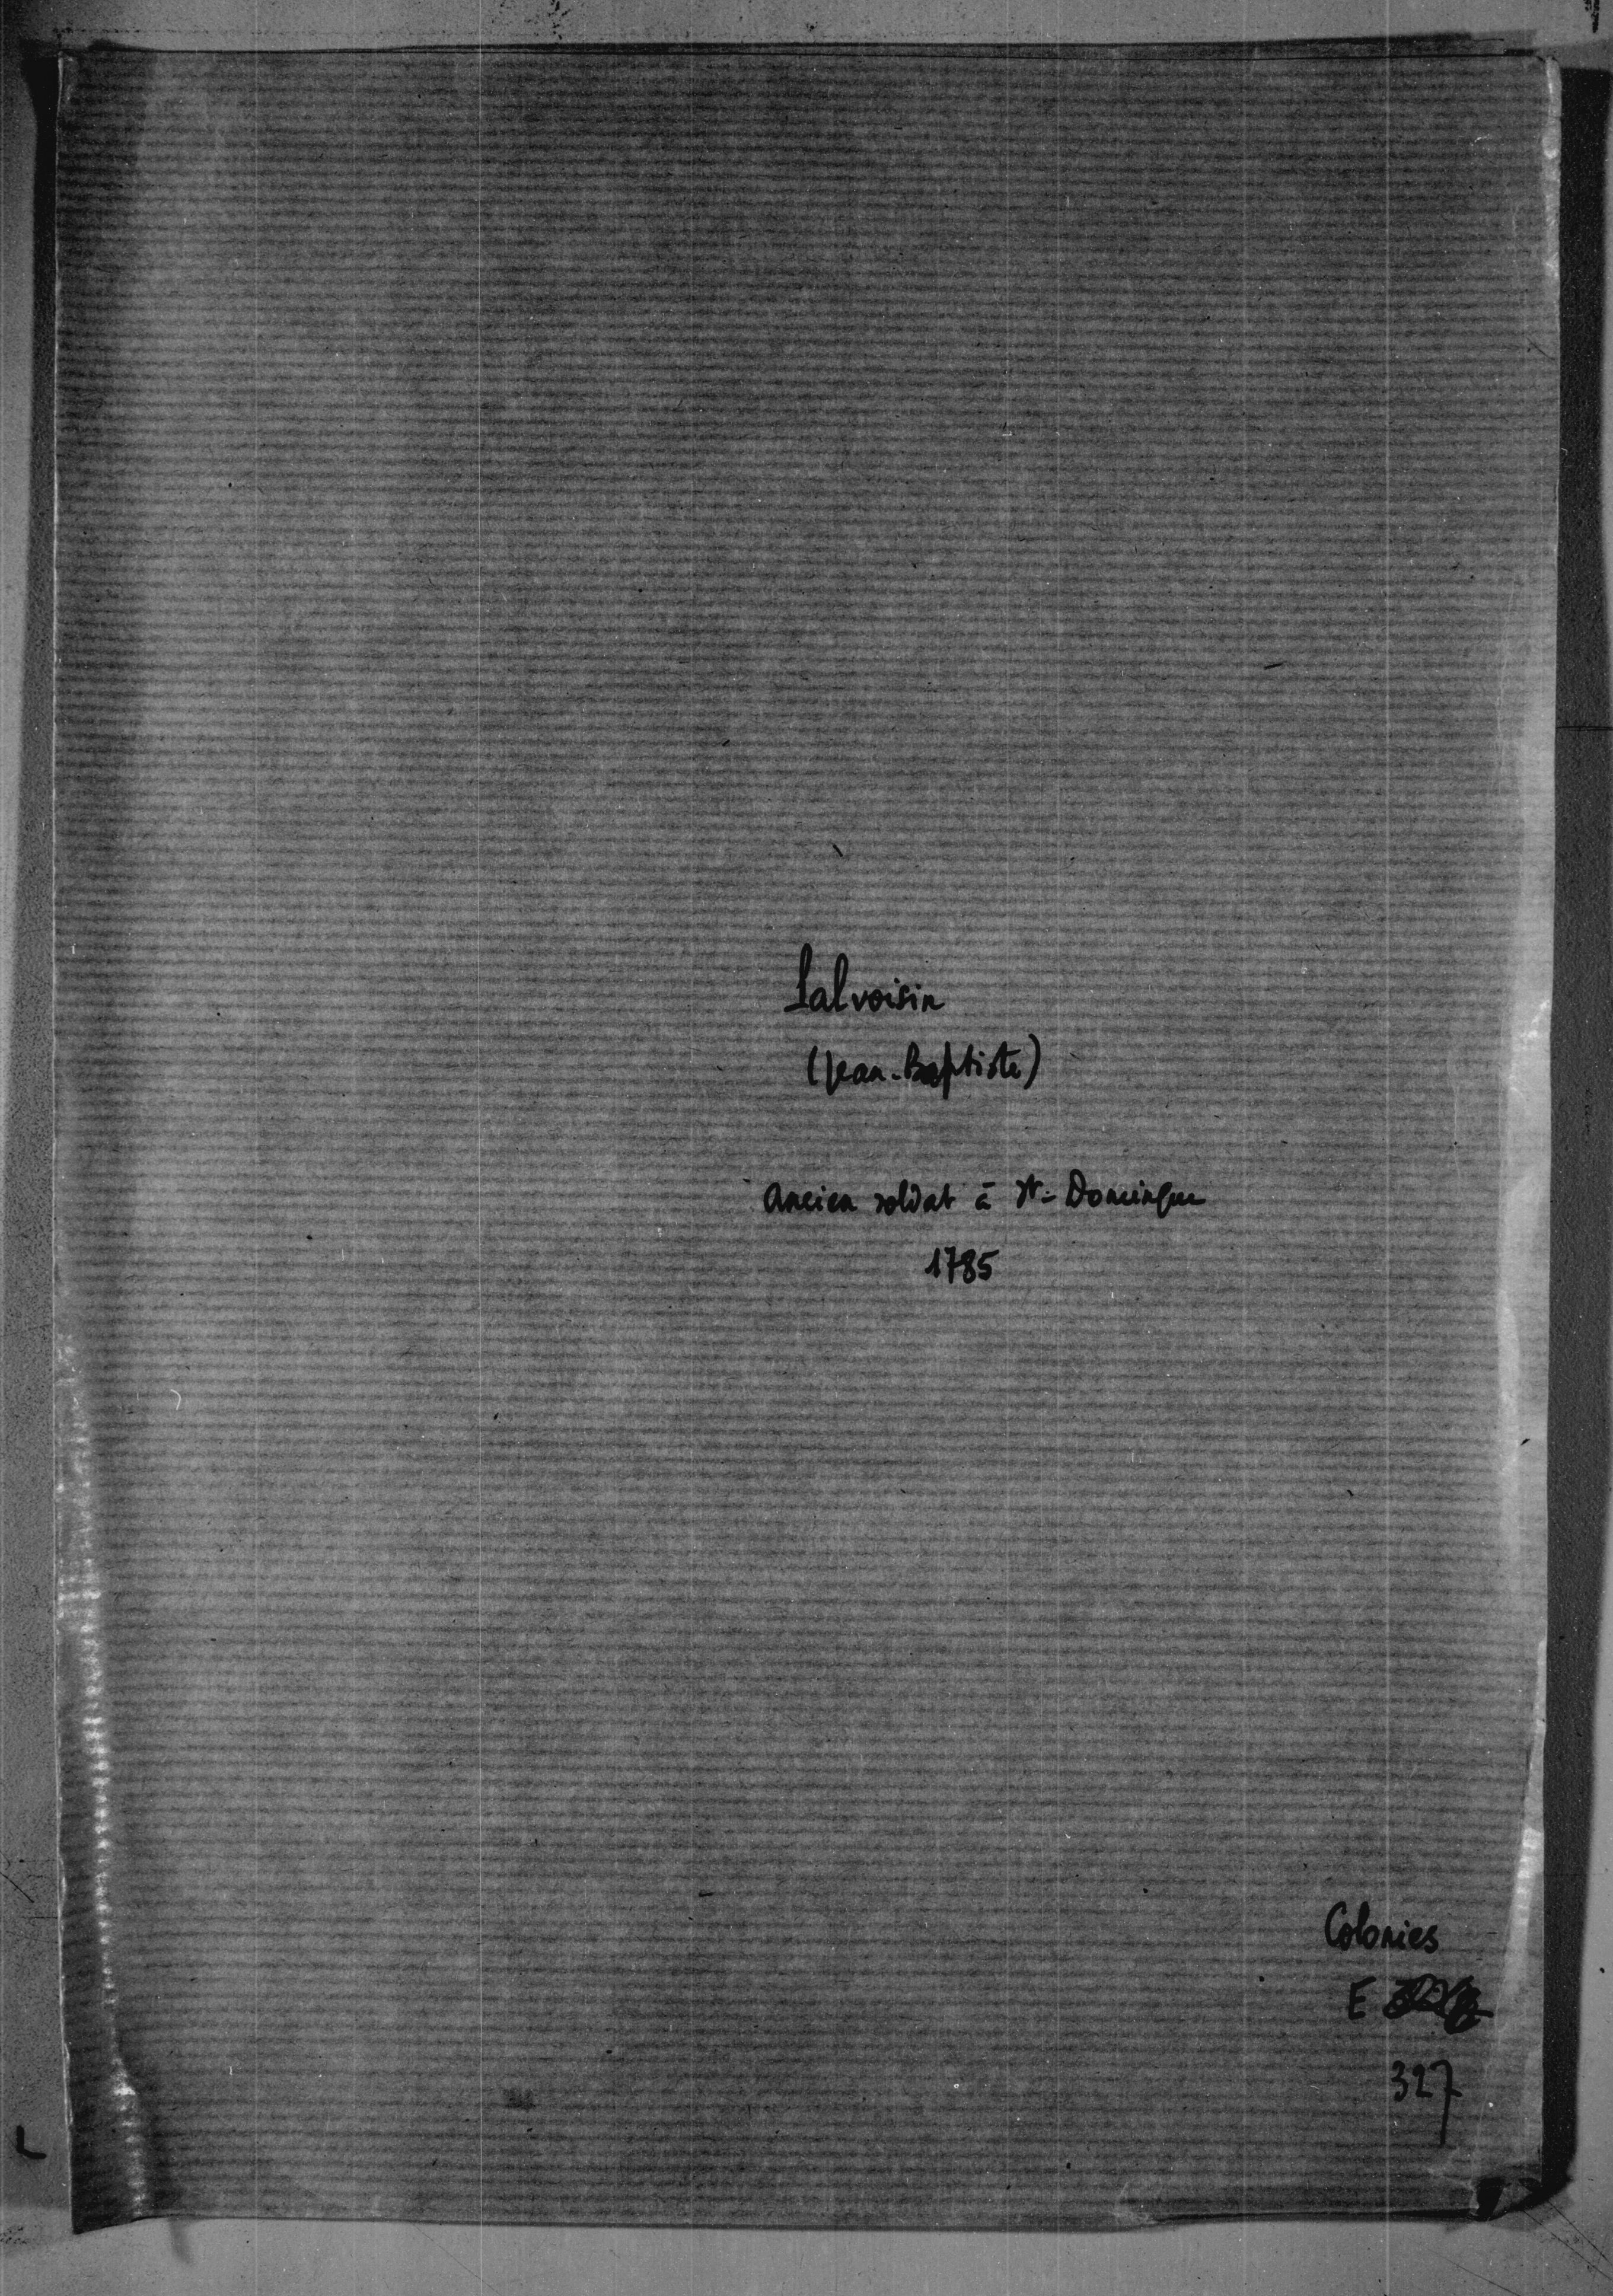 Lalvoisin
(Jean-Baptiste)
Ancien soldat à St-Domingue
1785
Colonies
E
327